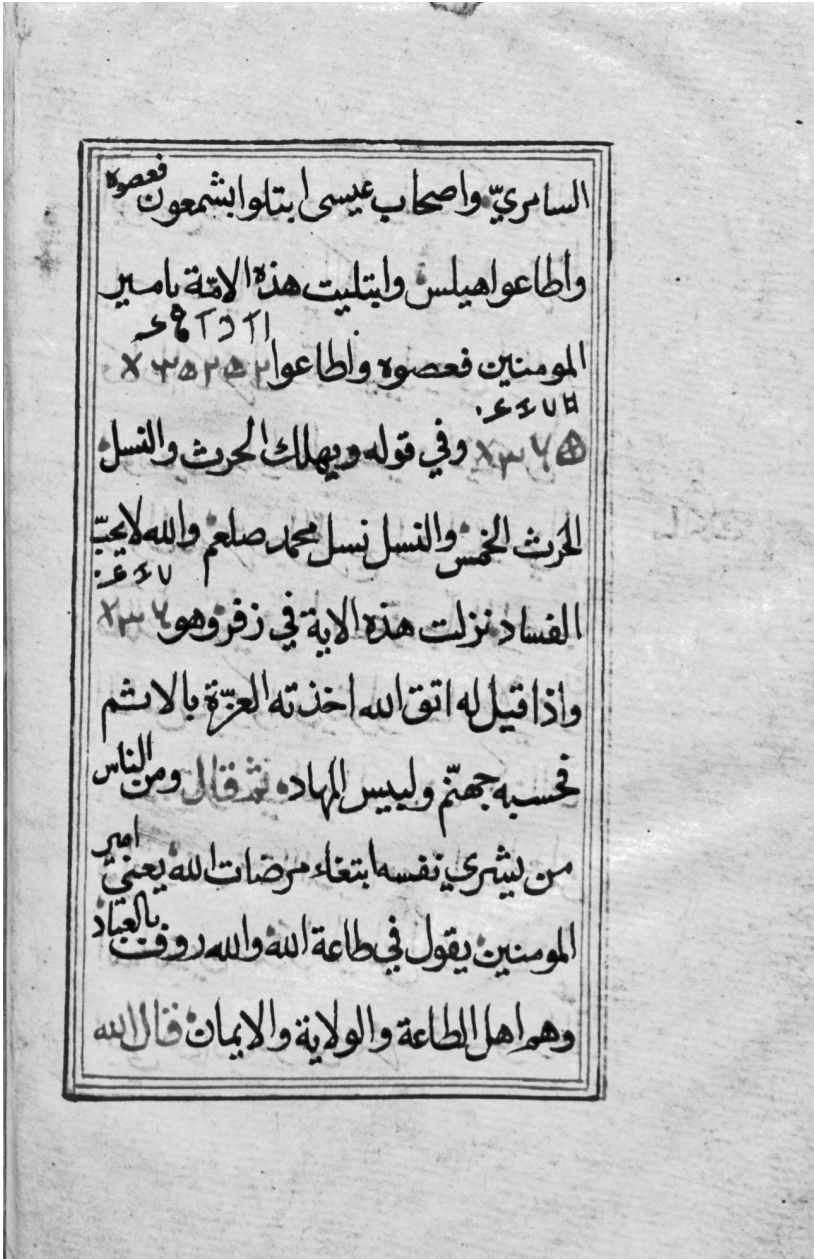 السامريّ واصحاب عيسى ابتلوا بشمعون فعصوه
واطاعوا هيلس وابتليت هذه الامّة بامير
المومنين فعصوه واطاعوا
وفي قوله ويهلك الحرث والنسل
الحرث الخمس والنسل نسل محمد صلعم والله لا يحبّ
الفساد نزلت هذه الاية في زفر وهو
واذا قيل له اتق الله اخذته العزّة بالاثم
فحسبه جهنّم ولبيس المهاد ثمّ قال ومن الناس
من يشري نفسه ابتغاء مرضات الله يعني امير
المومنين يقول في طاعة الله والله روف بالعباد
وهم اهل الطاعة والولاية والايمان قال الله